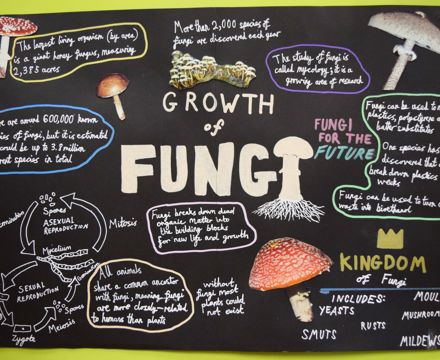 The largest living organism (by area)
is a giant honey fungus, measuring
2,385 acres
More than 2,000 species of
fungi are discovered each year
The study of fungi is
called mycology; it is a
growing area of research
GROWTH
of
FUNGI
are around 600,000 known
of fungi, but it is estimated
could be up to 3.8 million
species in total
FUNGI
FOR THE
FUTURE
Fungi can be used to
plastics,
substitutes
One species has
discovered that
break down plastics
weeks
Fungi can be used to turn
waste into
Spores
ASEXUAL
REPRODUCTION
Mitosis
Mycelium
SEXUAL
REPRODUCTION
Spores
Meiosis
Zygote
Fungi breaks down dead
organic matter into
the building blocks
for new life and growth
All animals
share a common ancestor
with fungi, meaning fungi
are more closely-related
to humans than plants
without
fungi most
plants could
not exist
KINGDOM
of Fungi
INCLUDES:
YEASTS
SMUTS
RUSTS
MOUL
MUSHROOM
MILDEWS